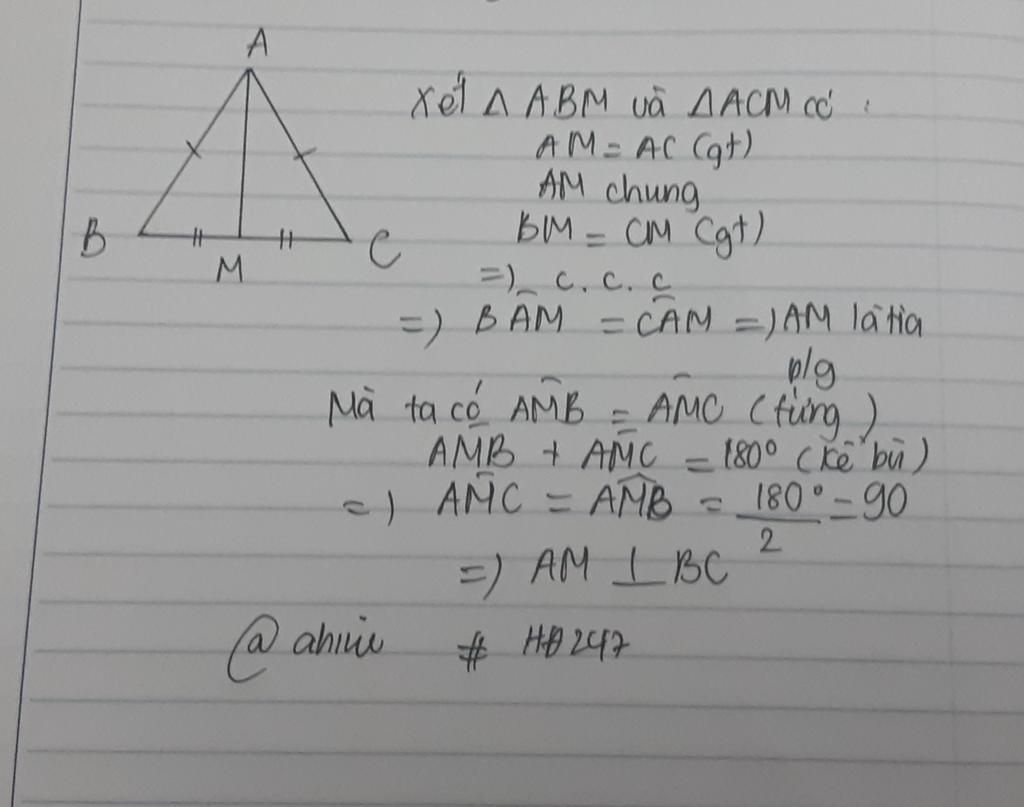 A
Xét Δ ABM và ΔACM có :
AM = AC (gt)
AM chung
B
BM = CM (gt)
C
M
=) c. c. c
=) BÂM = CÂM =) AM là tia
p/g
Mà ta có AM̂B = AM̂C (từng)
AM̂B + AM̂C = 180° (kề bù)
=) AM̂C = AM̂B = 180°/2 = 90
=) AM ⊥ BC
# HĐ247